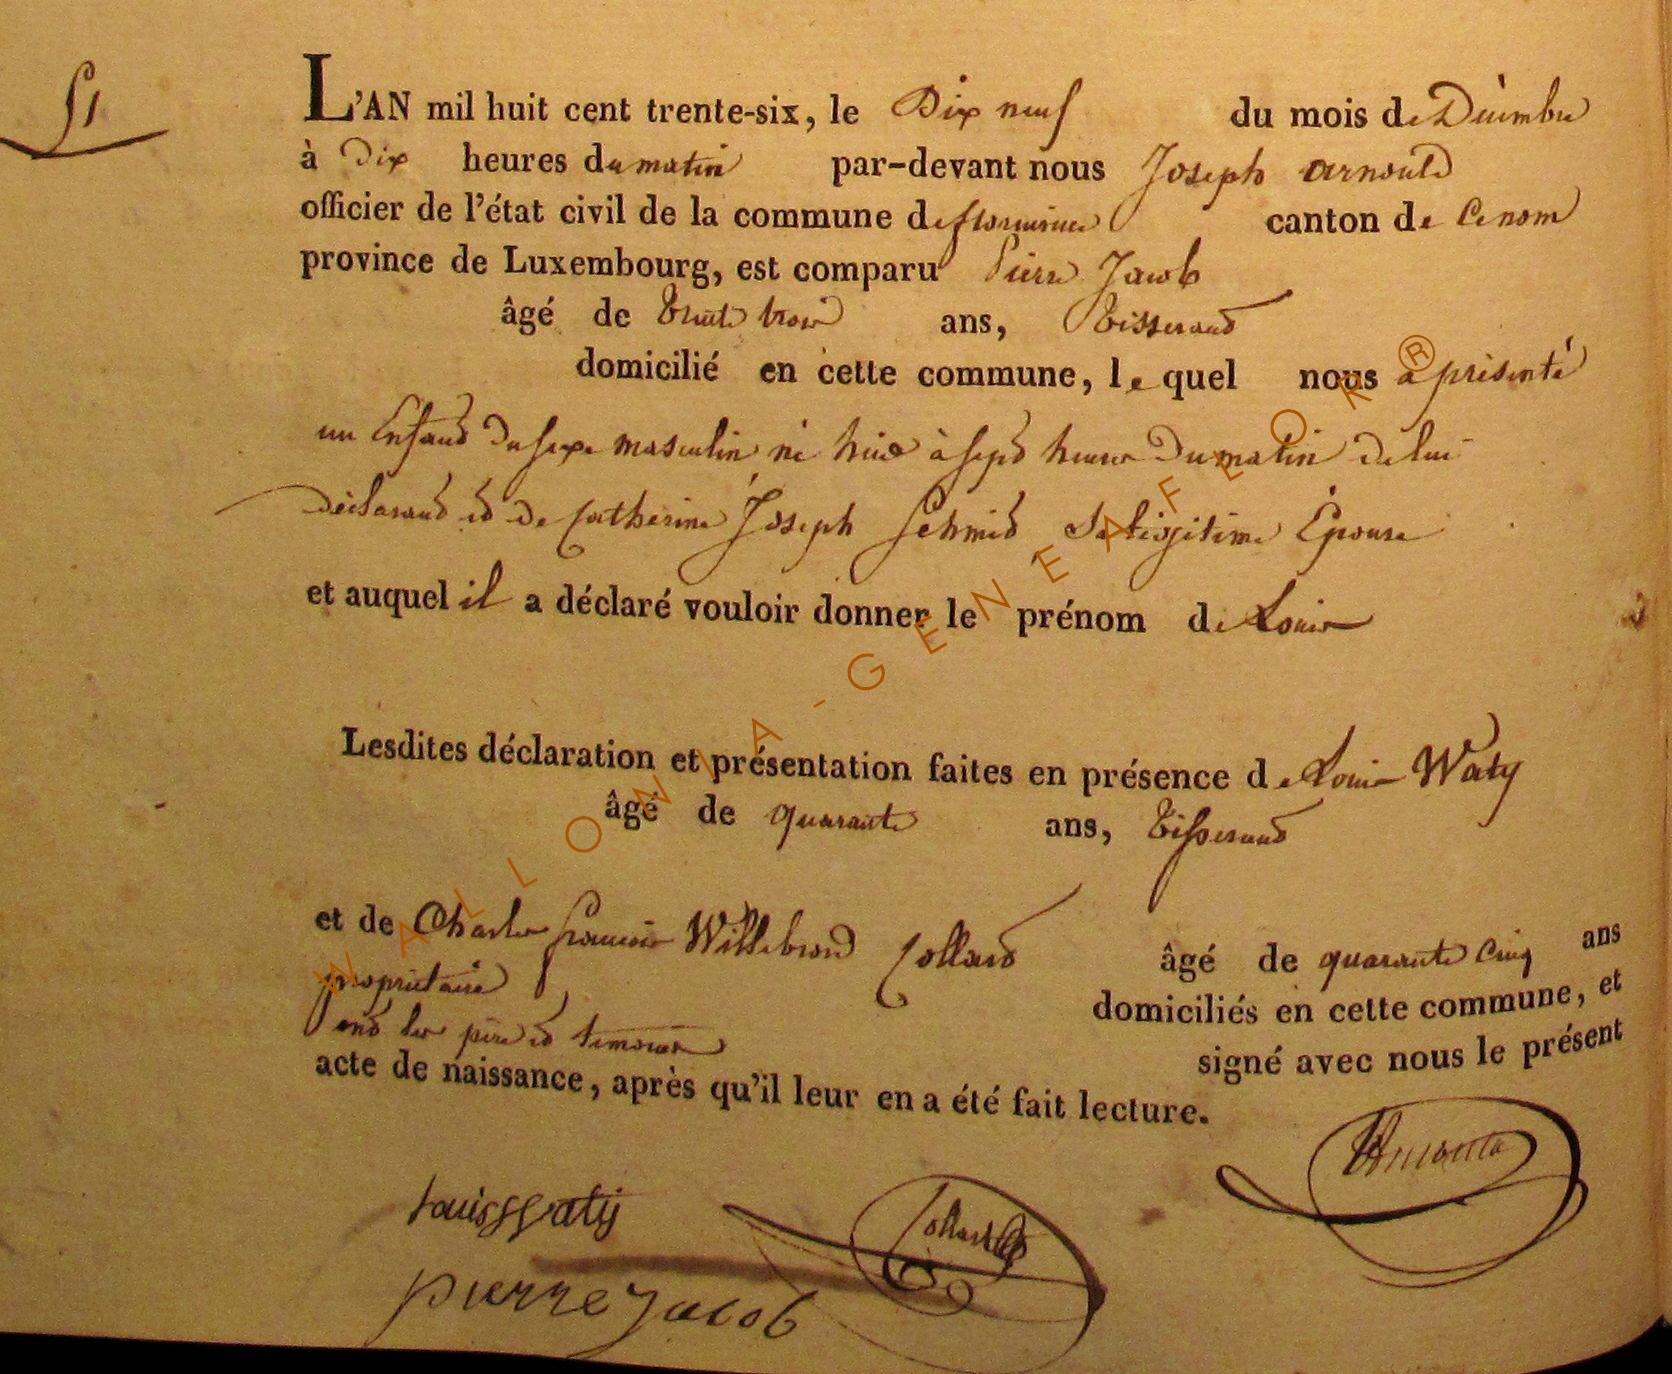 51
L'AN mil huit cent trente-six, le Dix neuf du mois de Décembre
à Dix heures du matin par-devant nous Joseph arnould
officier de l'état civil de la commune de florenville canton de Ce nom
province de Luxembourg, est comparu Pierre Jacob
âgé de trente trois ans, Tisserand
domicilié en cette commune, le quel nous a présenté
un Enfand du sexe masculin né hier à sepd heures du matin de lui
déclarand ed de Catherine Joseph Schmid Sa légitime Épouse
et auquel il a déclaré vouloir donner le prénom de Louis
Lesdites déclaration et présentation faites en présence de Louis Waty
âgé de quarante ans, Tisserand
et de Charles francois Willebrord Collard âgé de quarante cinq ans
propriétaire domiciliés en cette commune, et
ond les père ed temoins signé avec nous le présent
acte de naissance, après qu'il leur en a été fait lecture.
Louis Watij Collard Arnould
pierre Jacob
WALLONIA-GENEAFEOR®